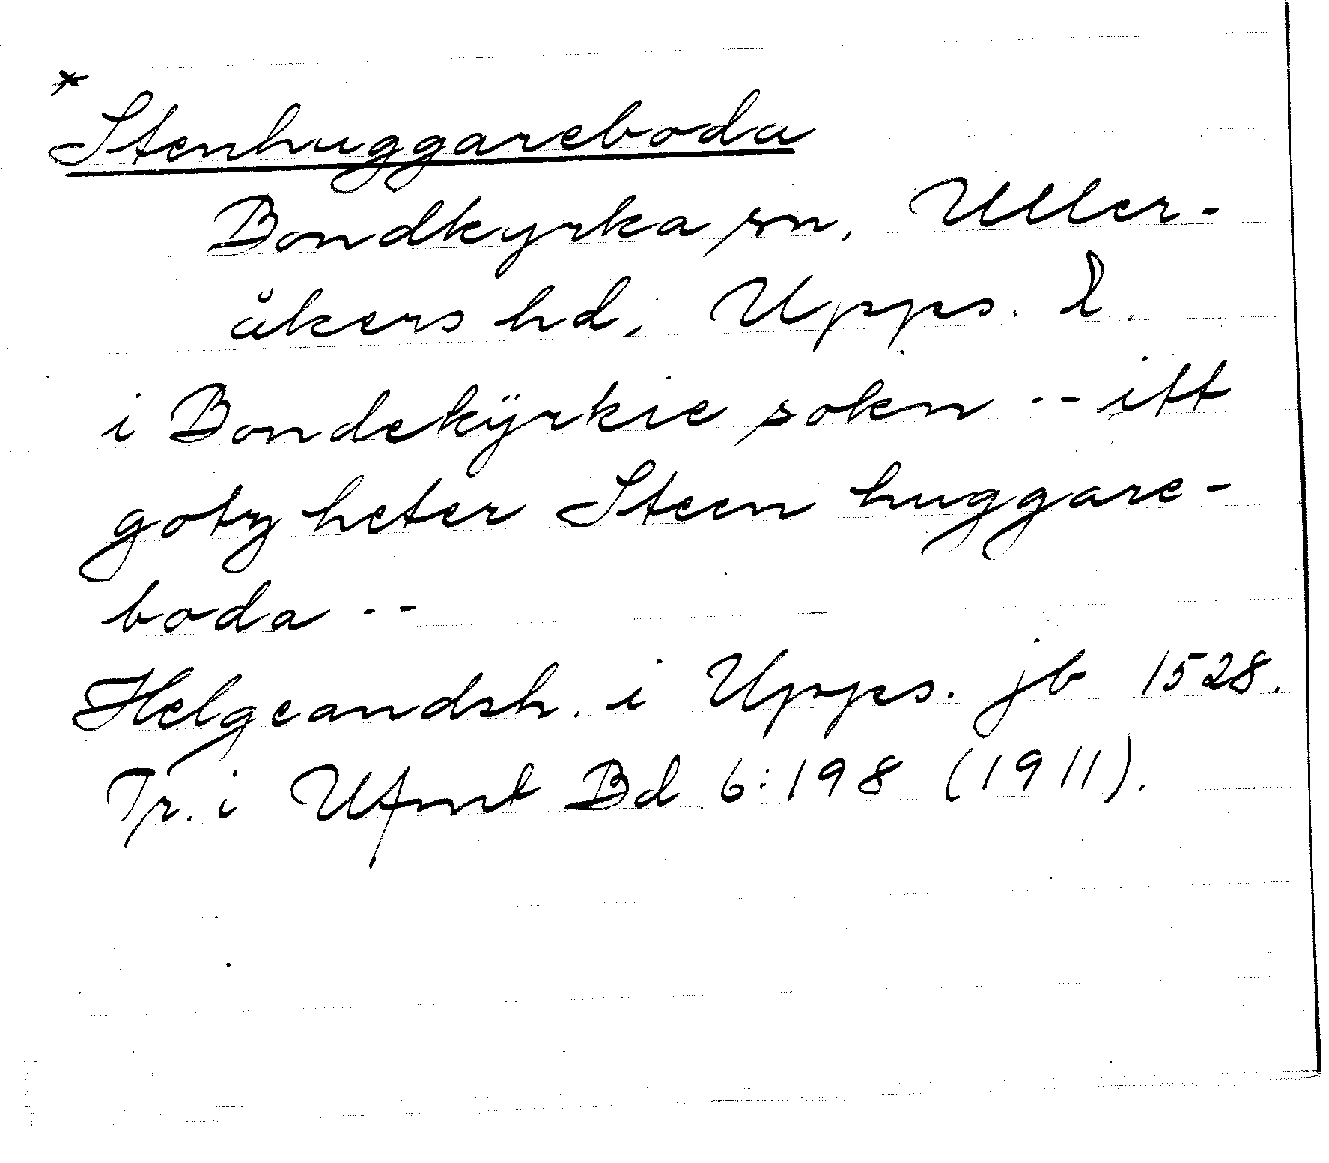 *
Stenhuggareboda
Bondkyrka sn, Uller-
åkers hd, Upps. l.
i Bondekÿrkie sokn -- itt
gotz heter Steen huggare-
boda --
Helgeandsh. i Upps. jb 1528.
Tr. i Ufmt Bd 6:198 (1911).